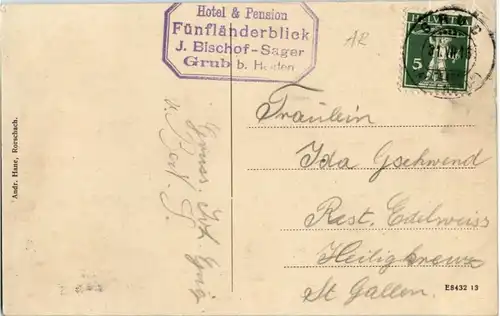 Hotel & Pension
Fünfländerblick
J. Bischof-Sager
Grub b. Heiden
AR
HELVETIA
5
Fräulein
Ida Gschwend
Rest. Edelweiss
Heiligkreuz
St Gallen.
Gruss.
Andr. Hane, Rorschach.
E8432 13